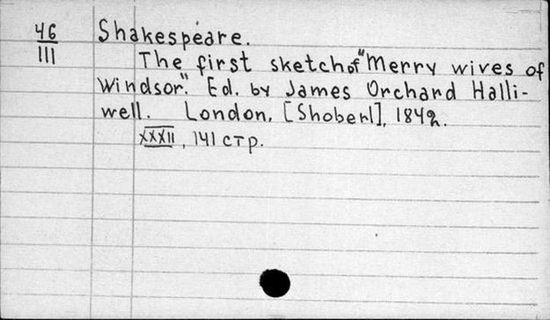 46
III
Shakespeare.
The first sketch of "Merry wives of
Windsor." Ed. by James Orchard Halli-
well. London, [Shoberl], 1842.
XXXII, 141 стр.